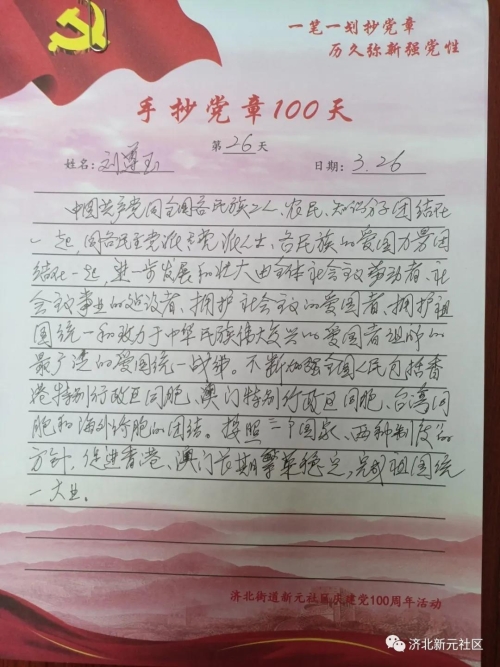 一笔一划抄党章
历久弥新强党性
手抄党章100天
第26天
姓名：刘尊玉 日期：3.26
中国共产党同全国各民族工人、农民、知识分子团结在
一起，同各民主党派无党派人士、各民族的爱国力量团
结在一起，进一步发展和壮大由全体社会主义劳动者、社
会主义事业的建设者、拥护社会主义的爱国者、拥护祖
国统一和致力于中华民族伟大复兴的爱国者组成的
最广泛的爱国统一战线。不断加强全国人民包括香
港特别行政区同胞、澳门特别行政区同胞、台湾同
胞和海外侨胞的团结。按照一个国家、两种制度的
方针，促进香港、澳门长期繁荣稳定，完成祖国统
一大业。
济北街道新元社区庆建党100周年活动
济北新元社区